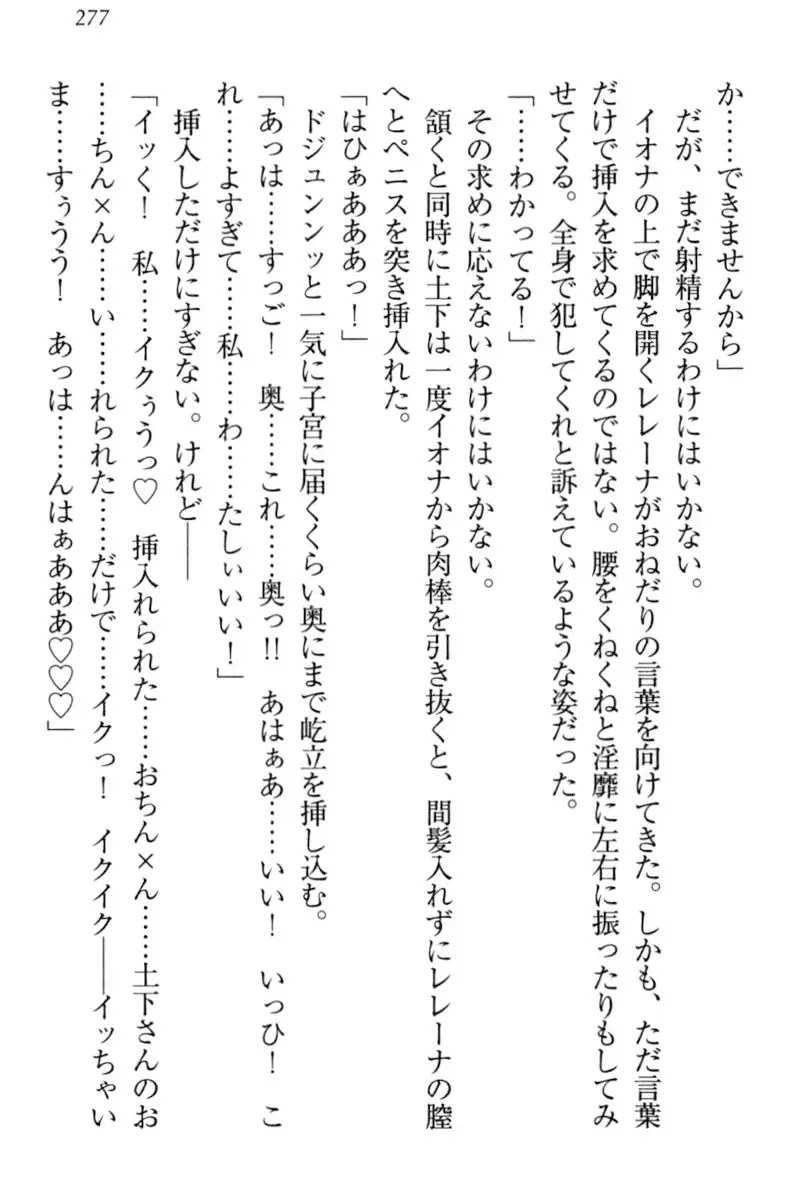 277
か……できませんから」
だが、まだ射精するわけにはいかない。
イオナの上で脚を開くレレーナがおねだりの言葉を向けてきた。しかも、ただ言葉
だけで挿入を求めてくるのではない。腰をくねくねと淫靡に左右に振ったりもしてみ
せてくる。全身で犯してくれと訴えているような姿だった。
「……わかってる！」
その求めに応えないわけにはいかない。
頷くと同時に土下は一度イオナから肉棒を引き抜くと、間髪入れずにレレーナの膣
へとペニスを突き挿入れた。
「はひぁあああっ！」
ドジュンンッと一気に子宮に届くくらい奥にまで屹立を挿し込む。
「あっは……すっご！　奥……これ……奥っ!!　あはぁあ……いい！　いっひ！　こ
れ……よすぎて……私……わ……たしぃいい！」
挿入しただけにすぎない。けれど――
「イッく！　私……イクぅうっ♡　挿入れられた……おちん×ん……土下さんのお
……ちん×ん……い……れられた……だけで……イクっ！　イクイク――イッちゃい
ま……すぅうう！　あっは……んはぁあああ♡♡♡」